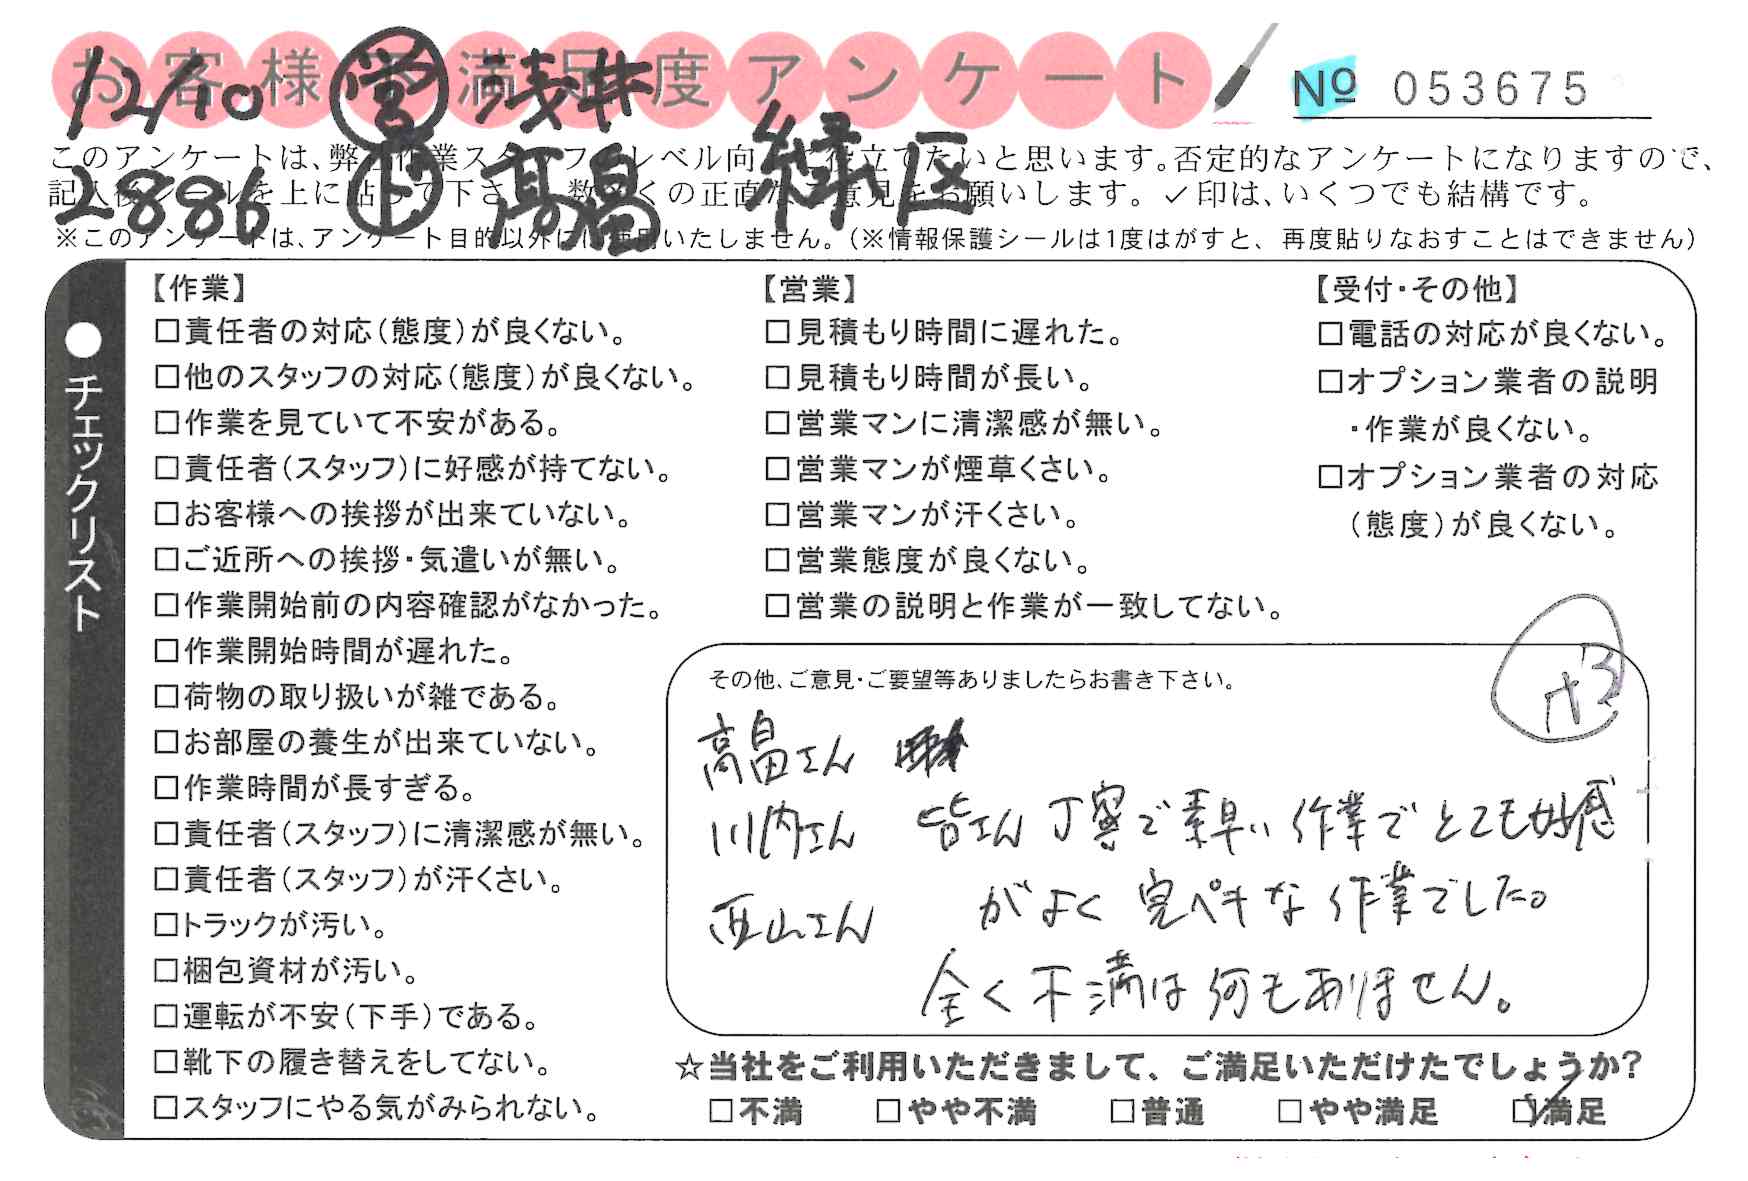 お客様不満足度アンケート
№ 053675
12/10 営 浅井
2886 ト 高畠 緑区
このアンケートは、弊社作業スタッフのレベル向上に役立てたいと思います。否定的なアンケートになりますので、
記入後シールを上に貼って下さい。数多くの正直なご意見をお願いします。✓印は、いくつでも結構です。
※このアンケートは、アンケート目的以外には使用いたしません。(※情報保護シールは1度はがすと、再度貼りなおすことはできません)
●チェックリスト
【作業】
□責任者の対応(態度)が良くない。
□他のスタッフの対応(態度)が良くない。
□作業を見ていて不安がある。
□責任者(スタッフ)に好感が持てない。
□お客様への挨拶が出来ていない。
□ご近所への挨拶・気遣いが無い。
□作業開始前の内容確認がなかった。
□作業開始時間が遅れた。
□荷物の取り扱いが雑である。
□お部屋の養生が出来ていない。
□作業時間が長すぎる。
□責任者(スタッフ)に清潔感が無い。
□責任者(スタッフ)が汗くさい。
□トラックが汚い。
□梱包資材が汚い。
□運転が不安(下手)である。
□靴下の履き替えをしてない。
□スタッフにやる気がみられない。
【営業】
□見積もり時間に遅れた。
□見積もり時間が長い。
□営業マンに清潔感が無い。
□営業マンが煙草くさい。
□営業マンが汗くさい。
□営業態度が良くない。
□営業の説明と作業が一致してない。
【受付・その他】
□電話の対応が良くない。
□オプション業者の説明
・作業が良くない。
□オプション業者の対応
(態度)が良くない。
その他、ご意見・ご要望等ありましたらお書き下さい。
+3
高畠さん
川内さん 皆さん丁寧で素早い作業でとても好感
西山さん がよく完ペキな作業でした。
全く不満は何もありません。
☆当社をご利用いただきまして、ご満足いただけたでしょうか?
□不満 □やや不満 □普通 □やや満足 ☑満足